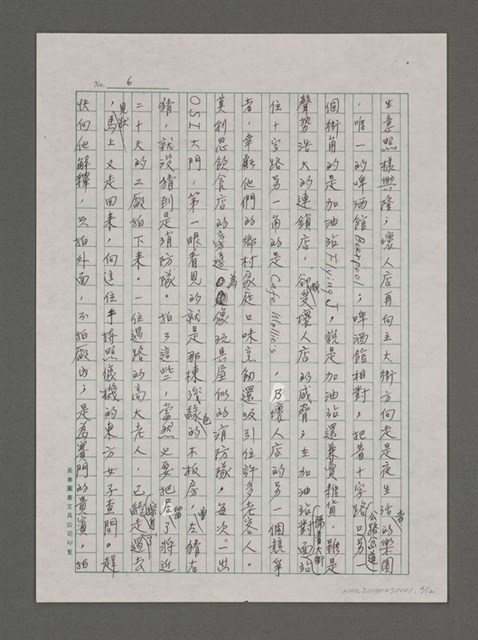 No. 6
生意照樣興隆；壞人店再向主大街方向走是夜生活者的樂園
，唯一的啤酒館Beerpool；啤酒館相對，把著十字路口另一
個街角的是加油站Flying J，說是加油站還兼賣雜貨，雖是
聲勢浩大的連鎖店，卻受壞人店的威脅；主加油站對面站
住十字路另一角的是Cafe Mollie's，乃壞人店的另一個競爭
者，幸虧他們的鄉村家庭口味烹飪還吸引住許多老客人。
莫利思飲食店的旁邊為像玩具屋似的消防隊，每次一出
OSI大門，第一眼看見的就是那棟淺綠色的木板房，左猜右
猜，就沒猜到是消防隊。拍了這些，當然必要把居留了將近
二十天的工廠拍下來。一位過路的高大老人，已經走過去
，見狀馬上又走回來，向這位手持照像機的東方女子查問。趕
快向他解釋，只拍外面，不拍廠內；是為貴門的貴賓，拍
長春圖書文具公司印製